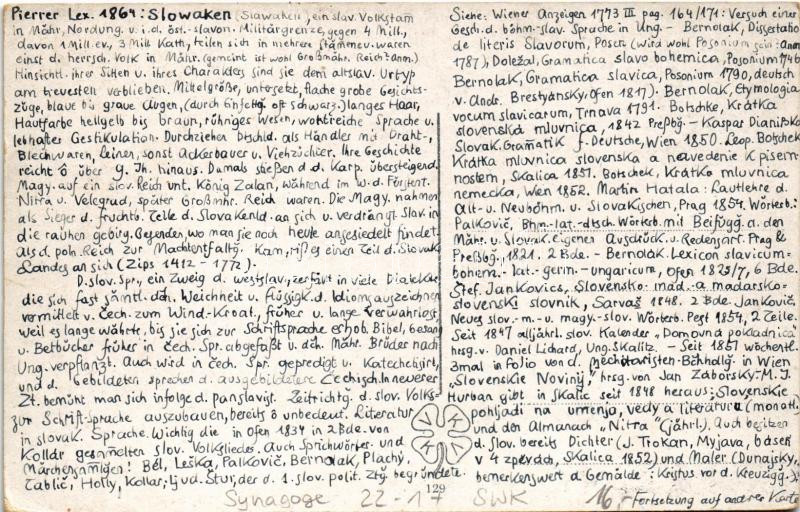 Pierrer Lex. 1864: Slowaken (Slawaken), ein slav. Volkstam
in Mähr, Nordung. u. i. d. öst.-slavon. Militärgrenze, gegen 4 Mill.,
davon 1 Mill. ev, 3 Mill Kath, teilen sich in mehrere Stämmeu. waren
einst d. herrsch. Volk in Mähr. (gemeint ist wohl Großmähr. Reich! Anm.)
Hinsichtl. ihrer Sitten u. ihres Charakters sind sie dem altslav. Urtyp
am treuesten verblieben. Mittelgröße, untersetzt, flache grobe Gesichts-
züge, blaue bis graue Augen, (durch Einfettg oft schwarz) langes Haar,
Hautfarbe hellgelb bis braun, rühriges Wesen, wohlreiche Sprache u
lebhafter Gestikulation. Durchziehen Dtschld. als Händler mit Draht-,
Blechwaren, Leinen, sonst Ackerbauer u. Viehzüchter. Ihre Geschichte
reicht ö über 9. Jh. hinaus. Damals stießen d d. Karp. übersteigend.
Magy. auf ein slov. Reich unt. König Zalan, während im W. d. Fürstent.
Nitra u. Velegrad, später Großmähr. Reich waren. Die Magy. nahmen
als Sieger d. fruchtb. Teile d. Slovakenld. an sich u. verdrängt. Slav. in
die rauhen gebirg. Gegenden, wo man sie noch heute angesiedelt findet.
Als d. poln. Reich zur Machtentfaltg. Kam, riß es einen Teil d. Slovak.
Landes an sich (Zips 1412 - 1772).
D. slov. Spr., ein Zweig d. westslav., zerfällt in viele Dialekte
die sich fast sämtl. dch. Weichheit u. Flüssigk. d. Idioms auszeichnen
vermittelt v. čech. zum Wind.-Kroat., früher u. lange verwahrlost,
weil es lange währte, bis sie sich zur Schriftsprache erhob. Bibel, Gesang
u. Betbücher früher in čech. Spr. abgefaßt u. dch. Mähr. Brüder nach
Ung. verpflanzt. Auch wird in čech. Spr. gepredigt u. Katechetisirt,
und d. Gebildeten sprechen d. ausgebildetere Čechisch. In neuerer
Zt. bemüht man sich infolge d. panslavist. Zeitrichtg. d. slov. Volks-
zur Schrift-Sprache auszubauen, bereits ö unbedeut. Literatur
in slovak. Sprache. Wichtig die in Ofen 1834 in 2 Bde. von
Kollár gesammelten slov. Volkslieder. Auch Sprichwörter- und
Märchensammlgen! Bel, Leška, Palkovič, Bernolak, Plachý,
Tablic, Holly, Kollar; Ljud. Štur, der d. 1. slov. polit. Ztg. begründete.
Siehe: Wiener Anzeigen 1773 III pag. 164/171: Versuch einer
Gesch. d. böhm-slav. Sprache in Ung. - Bernolak, Dissertatio
de literis Slavorum, Posen (wird wohl Posonium sein: Anm
1787), Doležal, Gramatica slavo bohemica, Posonium 1746
Bernolak, Gramatica slavica, Posonium 1790, deutsch
v. Andr. Brestyánsky, Ofen 1817). Bernolak, Etymologia
vocum slavicarum, Trnava 1791. Botschke, Krátka
slovenská mluvnica, 1842 Preßbg. - Kaspar Dianiška
Slovak. Gramatik f. Deutsche, Wien 1850. Leop. Botschek
Krátka mluvnica slovenska a navedenie k pisem-
nostem, Skalica 1851. Botschek, Krátko mluvnica
nemecka, Wien 1852. Martin Hatala: Lautlehre d.
Alt- u. Neuböhm. u. Slovakischen, Prag 1854. Wörterb.:
Palkovič, Bhm.-lat.-dtsch. Wörterb. mit Beifügg. a. den
Mähr. u. Slovak. eigenen Ausdrück. u. Redensart. Prag &
Preßbg., 1821. 2 Bde. - Bernolak. Lexicon slavicum-
bohem.- lat.- germ.- ungaricum, Ofen 1825/7, 6 Bde.
Štef. Jankovics, Slovensko- mad.- a madarsko-
slovenski slovnik, Sarvaš 1848. 2 Bde. Jankovič,
Neues slov.- m.- u. magy-slov. Wörterb. Pest 1854, 2 Teile.
Seit 1847 alljährl. slov. Kalender "Domovná pokladnica"
hrsg. v. Daniel Lichard, Ung. Skalitz. - Seit 1851 wöchentl.
3mal in Folio von d. Mechitaristen-Bchhdlg. in Wien
"Slovenskie Noviny", hrsg. von Jan Záborsky - M. J.
Hurban gibt in Skalic seit 1848 heraus: Slovenskie
pohljadi na umenja, vedy a literatúru (monatl.)
und den Almanach "Nitra" (jährl.). Auch besitzen
d. Slov. bereits Dichter (J. Trokan, Myjava, báseň
v 4 zpevách, Skalica 1852) und Maler (Dunajsky,
bemerkenswert d. Gemälde: Kristus vor d. Kreuzigg.)
129
Synagoge 22-17 SWK 16,-
Fortsetzung auf anderer Karte